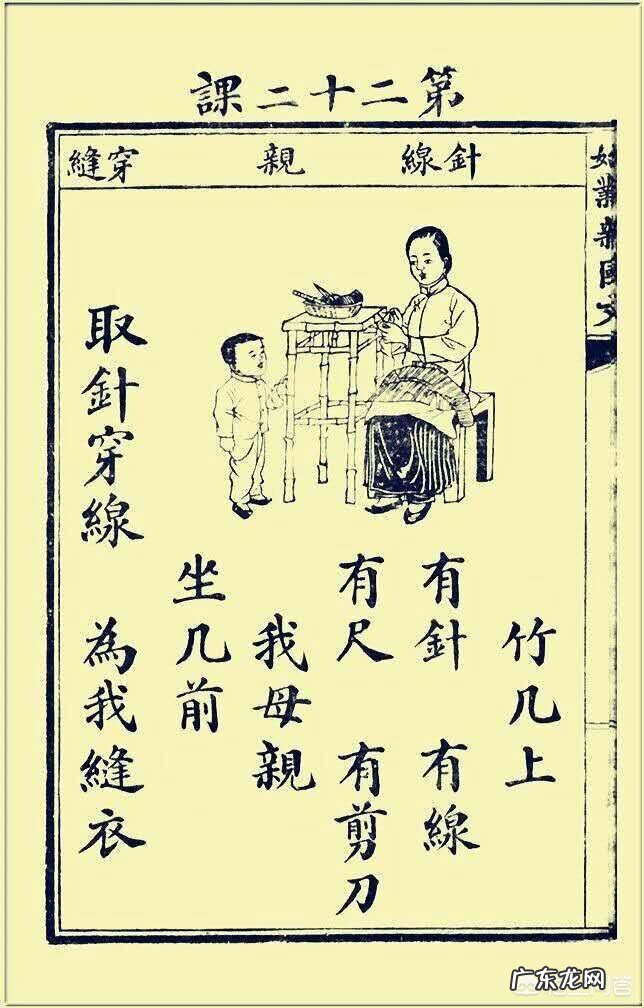 第二十二課
針線 親 穿縫
竹几上
有針 有線
有尺 有剪刀
我母親
坐几前
取針穿線 為我縫衣
广东龙网